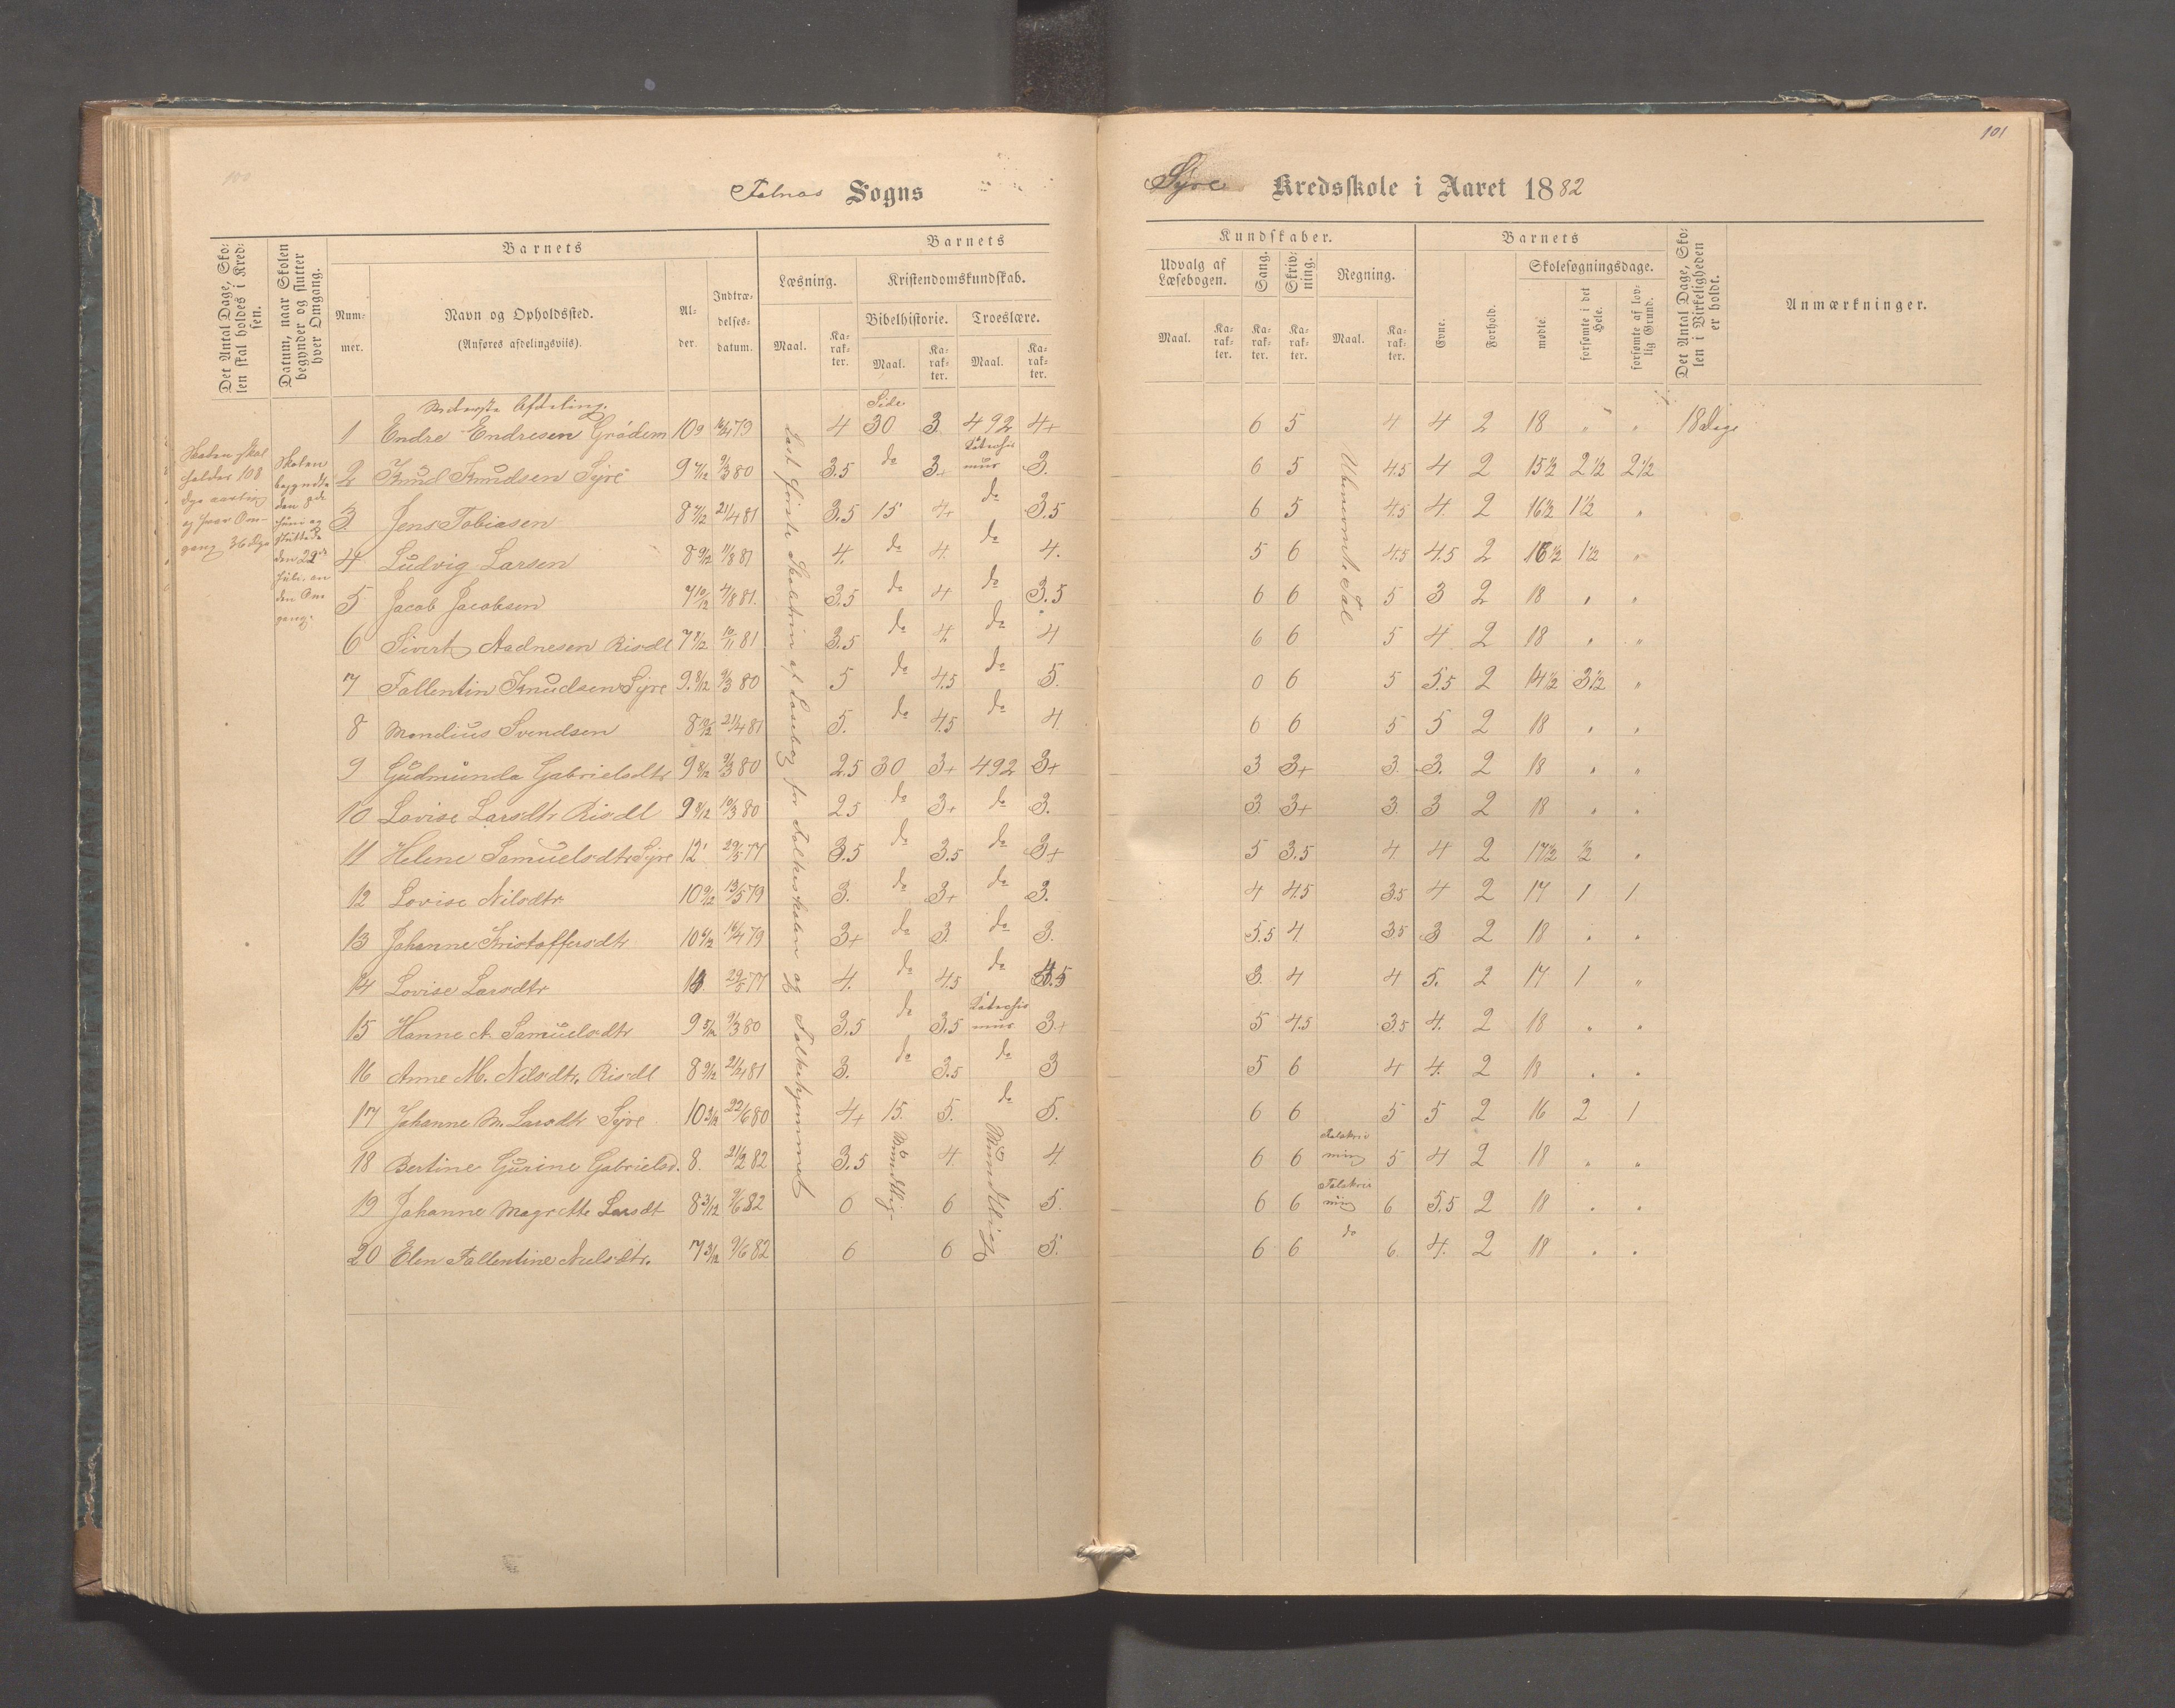 100
101
Falnæs Sogns
Syre Kredsskole i Aaret 1882
Det Antal Dage, Sko-
len skal holdes i Kred-
sen.
Datum, naar Skolen
begynder og slutter
hver Omgang.
Barnets
Num-
mer.
Navn og Opholdssted.
(Anføres afdelingsviis).
Al-
der.
Indtræ-
delses-
datum.
Barnets
Læsning.
Maal.
Ka-
rak-
ter.
Kristendomskundskab.
Bibelhistorie.
Maal.
Ka-
rak-
ter.
Troeslære.
Maal.
Ka-
rak-
ter.
Kundskaber.
Udvalg af
Læsebogen.
Maal.
Ka-
rak-
ter.
Sang.
Ka-
rak-
ter.
Skriv-
ning.
Ka-
rak-
ter.
Regning.
Maal.
Ka-
rak-
ter.
Barnets
Evne.
Forhold.
Skolesøgningsdage.
mødte.
forsømte i det
Hele.
forsømte af lov-
lig Grund.
Det Antal Dage, Sko-
len i Virkeligheden
er holdt.
Anmærkninger.
Nederste Afdeling.
Side
Skolen skal
holdes 108
Dge aarlig
og hver Om-
gang 36 Dge
Skolen
begyndte
den 8de
Juni og
sluttede
den 29de
Juli. en
den Om
gang.
Læst første Skoletrin af Læsebog for Folkeskolen og Folkehjemmet
Ubenevnte Tal
1 Endre Endresen Grødem 10 9 16/4 79 4 30 3. 492 4+ 6 5 4 4 2 18 " " 18 Dage
2 Knud Knudsen Syre 9 7/12 9/3 80 3.5 do 3+ Katechis
mus 3. 6 5 4.5 4 2 15½ 2½ 2½
3. Jens Tobiasen 8 7/12 21/4 81 3.5 15 4+ do 3.5 6 5 4.5 4. 2 16½ 1½ "
4 Ludvig Larsen 8 9/12 11/8 81 4. do 4. do 4. 5 6 4.5 4.5 2 16½ 1½ "
5 Jacob Jacobsen 7 10/12 4/8 81. 3.5 do 4 do 3.5 6 6 5 3 2 18 " "
6 Sivert Aadnesen Risdl 7 8/12 10/11 81 3.5 do 4. do 4 6 6 5 4. 2 18 " "
7 Fallentin Knudsen Syre 9. 8/12 9/3 80 5 do 4.5 do 5. 0 6 5 5.5 2 14½ 3½ "
8 Mandius Svendsen 8 10/12 21/4 81 5. do 4.5 do 4. 6 6 5 5 2 18 " "
9 Gudmunda Gabrielsdtr 9 8/12 9/3 80 2.5 30 3+ 492 3+ 3 3+ 3. 3. 2 18 " "
10 Lovise Larsdtr Risdl 9 9/12 10/3 80 2.5 do 3+ do 3. 3. 3+ 3. 3 2 18 " "
11 Helene Samuelsdtr Syre 12 29/5 77 3.5 do 3.5 do 3+ 5 3.5 4. 4 2 17½ ½ "
12 Lovise Nilsdtr 10 9/12 13/5 79 3. do 3+ do 3. 4 4.5 3.5 4 2 17 1 1
13 Johanne Kristoffersdtr 10 6/12 16/4 79 3+ do 3. do 3. 5.5 4. 3.5 3 2 18 " "
14 Lovise Larsdtr 29/5 77 4. do 4.5 do 3. 4 4 5. 2 17 1 "
15 Hanne A. Samuelsdtr 9 5/12 9/3 80 3.5 do 3.5 Katechis
mus 3+ 5 4.5 3.5 4. 2 18 " "
16 Anne M. Nilsdtr. Risdl 8 9/12 21/4 81 3. do 3.5 do 3 5 6 4 4. 2 18 " "
17 Johanne M. Larsdtr Syre 10 3/12 22/6 80 4+ 15. 5. do 5. 6 6 5 5 2 16 2 1
18 Bertine Gurine Gabrielsd. 8. 21/2 82 3.5 Mundtlig 4. Mundtligt 4. 6 6 Talskriv
ning 5 4 2 18 " "
19 Johanne Magrette Larsdt 8 3/12 9/6 82 0 6 5. 6 6 Talskriv
ning 6 5.5 2 18 " "
20 Elen Fallentine Nielsdtr. 7 3/12 9/6 82 6 6 5. 6 6 do 6. 4. 2 18 " "